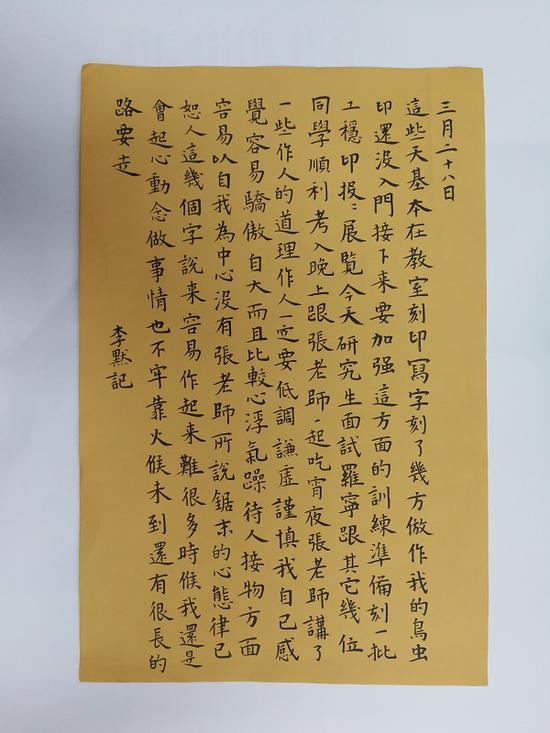 三月二十八日
這些天基本在教室刻印寫字刻了幾方倣作我的鳥虫
印還没入門接下来要加强這方面的訓練準備刻一批
工穩印投：展覧今天研究生面試羅寧跟其它幾位
同學順利考入晚上跟張老師一起吃宵夜張老師講了
一些作人的道理作人一定要低調謙虚謹慎我自己感
覺容易驕傲自大而且比較心浮氣躁待人接物方面
容易以自我為中心没有張老師所說鋸末的心態律己
恕人這幾個字說来容易作起来難很多時候我還是
會起心動念做事情也不牢靠火候未到還有很長的
路要走
李默記